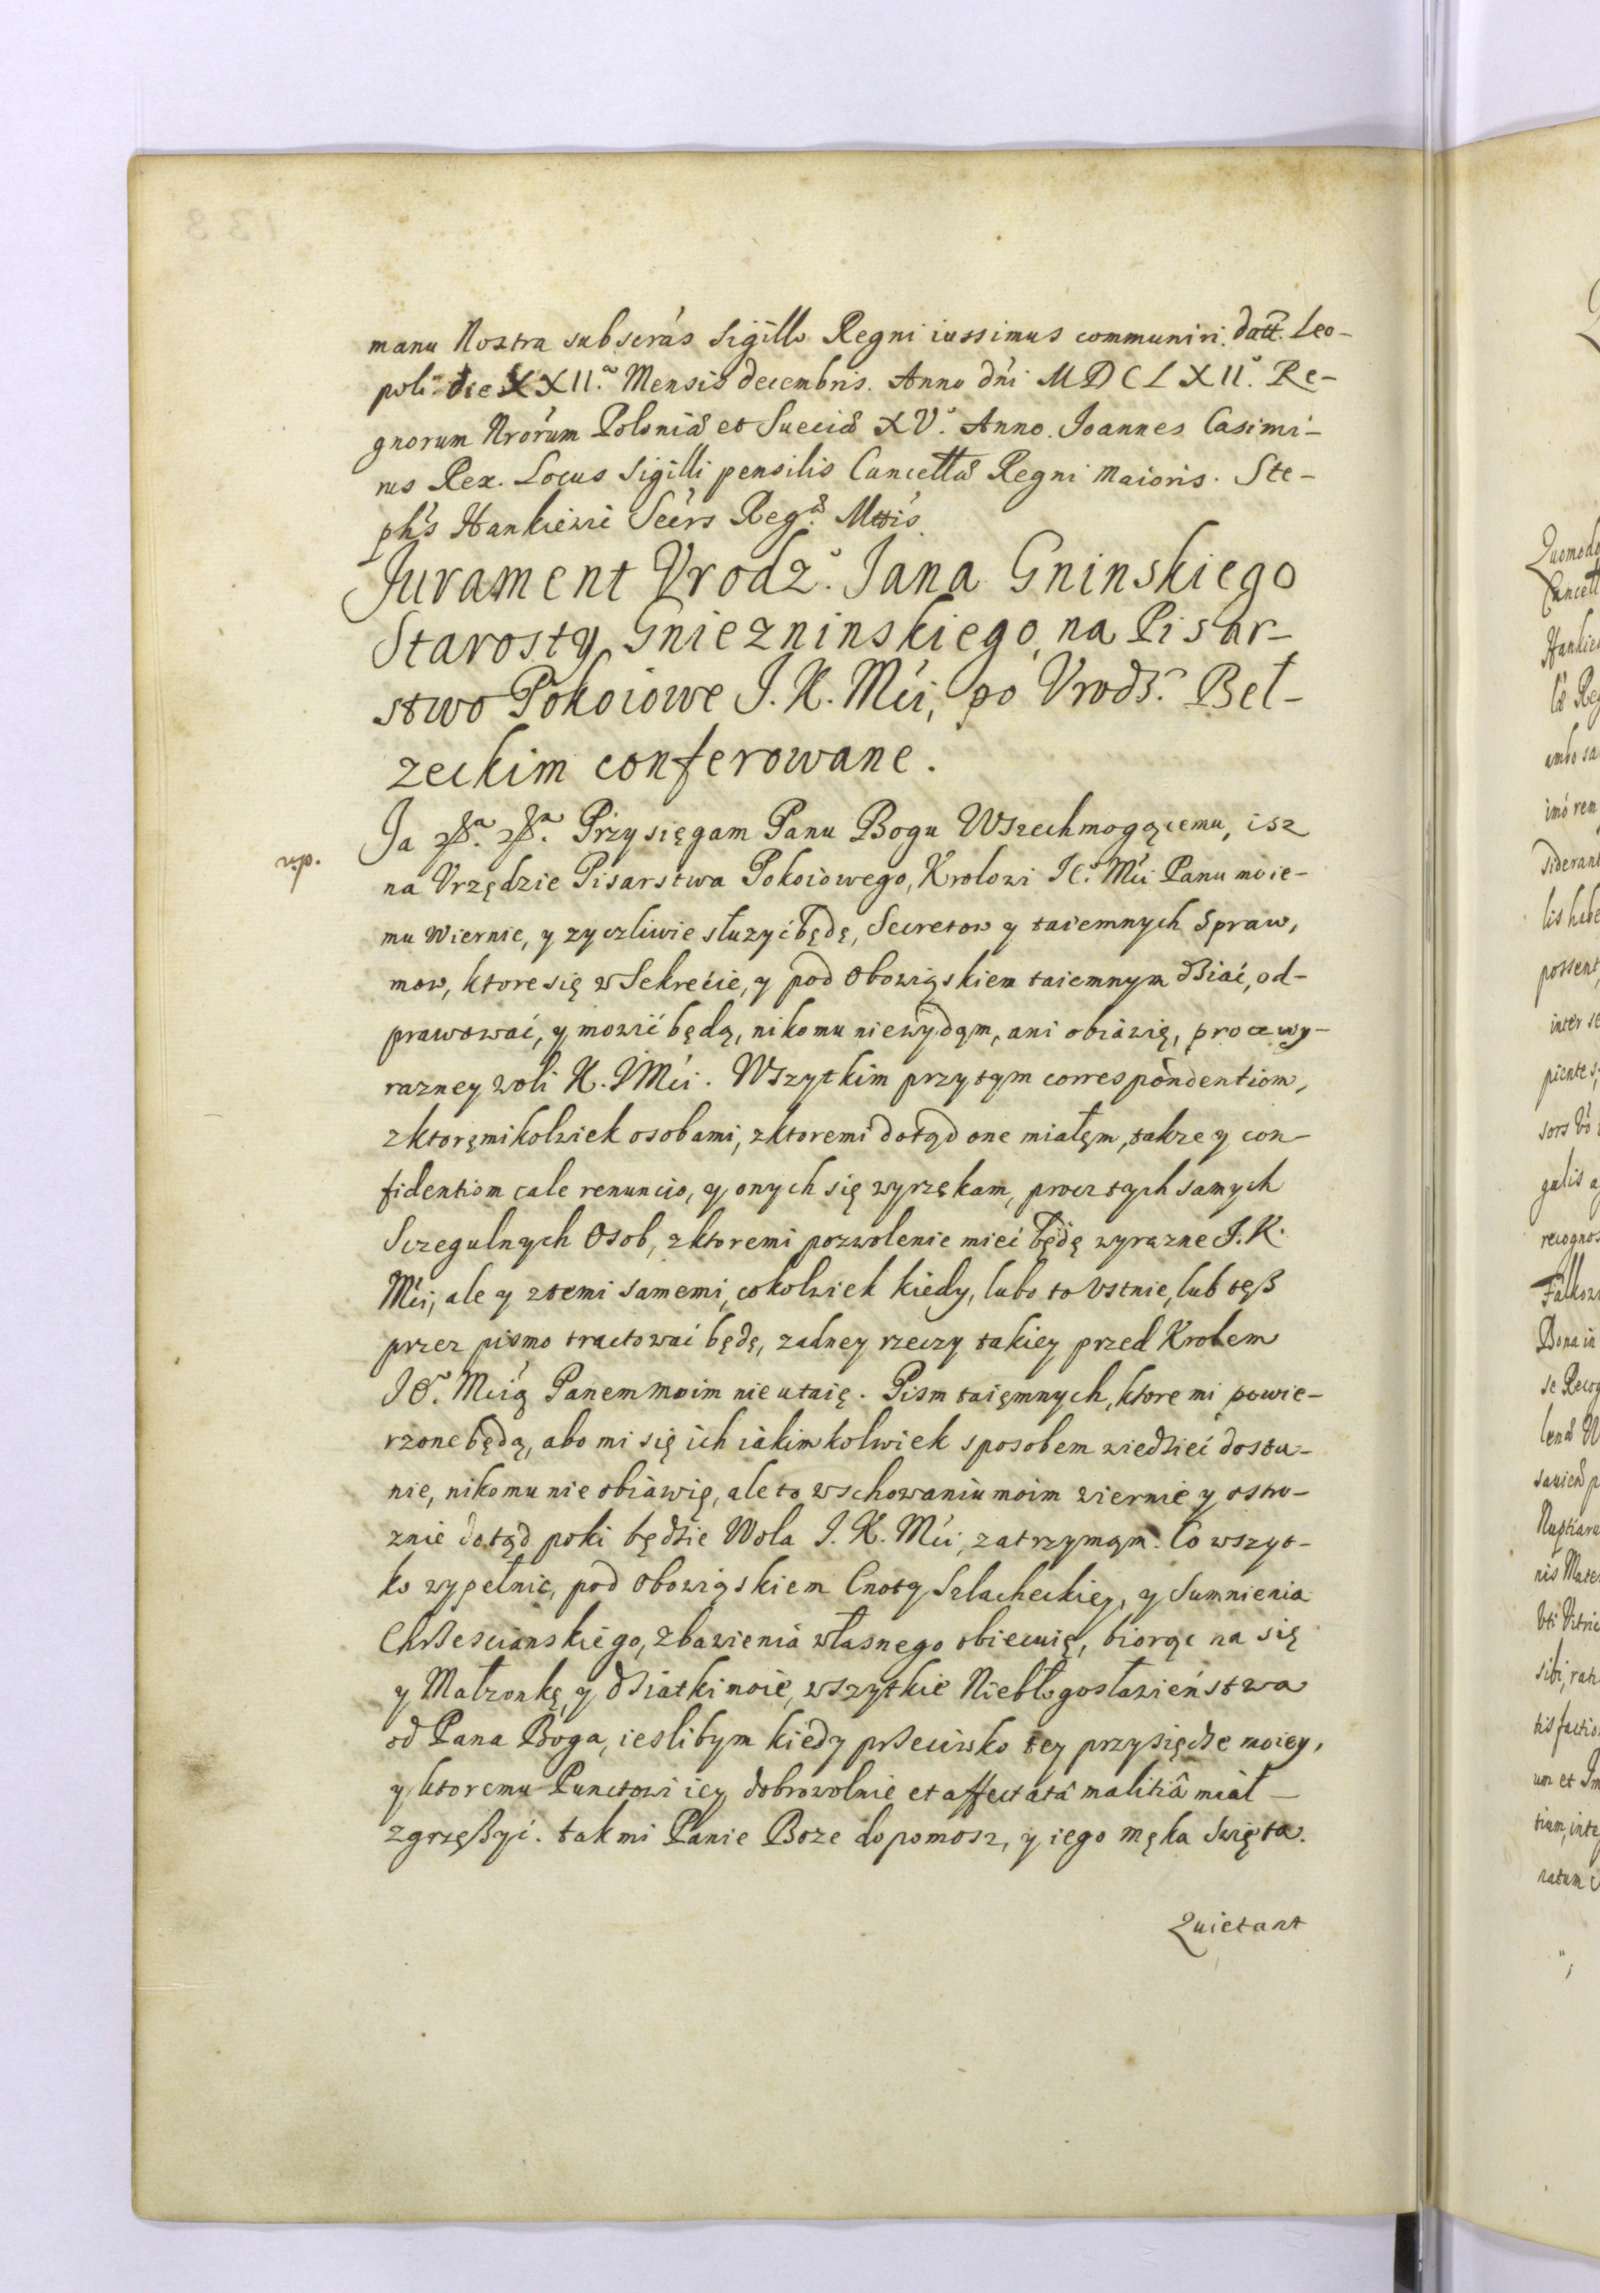 manu Nostra subscrás Sigillo Regni iussimus communiri. datt. Leo-
poli die XXII.a Mensis decembris. Anno dńi MDCLXII.o Re-
gnorum Nrórum Poloniæ et Sueciæ XV.o Anno. Joannes Casimi-
rus Rex. Locus Sigilli pensilis Cancellæ Regni Maioris. Ste-
phs Hankiewic Secrs Reg.æ Mttis
Jurament Vrodz.o Jana Gninskiego
Starosty Gniezninskiego, na Pisar-
stwo Pokoiowe J. K. Mći, po Vrodz.m Beł-
zeckim conferowane.
Ja N. N. Przysięgam Panu Bogu Wszechmogącemu, isz
na Vrzędzie Pisarstwa Pokoiowego, Krolowi Je.o Mći Panu moie-
mu wiernie, y zyczliwie słuzyć będę, Secretow y taiemnych Spraw,
mow, ktore się w Sekrećie, y pod Obowiąskiem taiemnym dziać, od-
prawować, y mowić będą, nikomu niewydąm, ani obiáwię, procz wy-
razney woli K. JMći. Wszytkim przytym correspondentiom,
z ktoręmikolwiek osobami, z ktoremi dotąd one miałęm, takze y con-
fidentiom cale renuncio, y onych się wyrzękam, procz tych samych
Sczegulnych Osob, z ktoremi pozwolenie mieć będę wyrazne J. K.
Mći, ale y z temi samemi, cokolwiek kiedy, lubo to Vstnie, lub tęß
przez pismo tractować będę, zadney rzeczy takiey przed Krolem
Je.o Mcią Panem moim nie utaię. Pism taięmnych, ktore mi powie-
rzone będą, abo mi się ich iákimkolwiek sposobem wiedzieć dosta-
nie, nikomu nie obiáwię, ale to w schowaniu moim wiernie y ostro-
znie dotąd poki będzie Wola J. K. Mći, zatrzymąm. Co wszyt-
ko wypełnic, pod Obowiąskiem Cnoty Szlacheckięy, y Sumnienia
Chrzescianskiego, zbawienia własnego obiecuię, biorąc na się
y Małzonkę, y dziatki moie, wszytkie Niebłogosławieństwa
od Pana Boga, ieslibym kiedy przeciwko tey przysiędze moiey,
y ktoremu Punctowi iey dobrowolnie et affectatâ malitiâ miał
zgrzęßyć. tak mi Panie Boze dopomosz, y iego męka Swięta.
Quietant